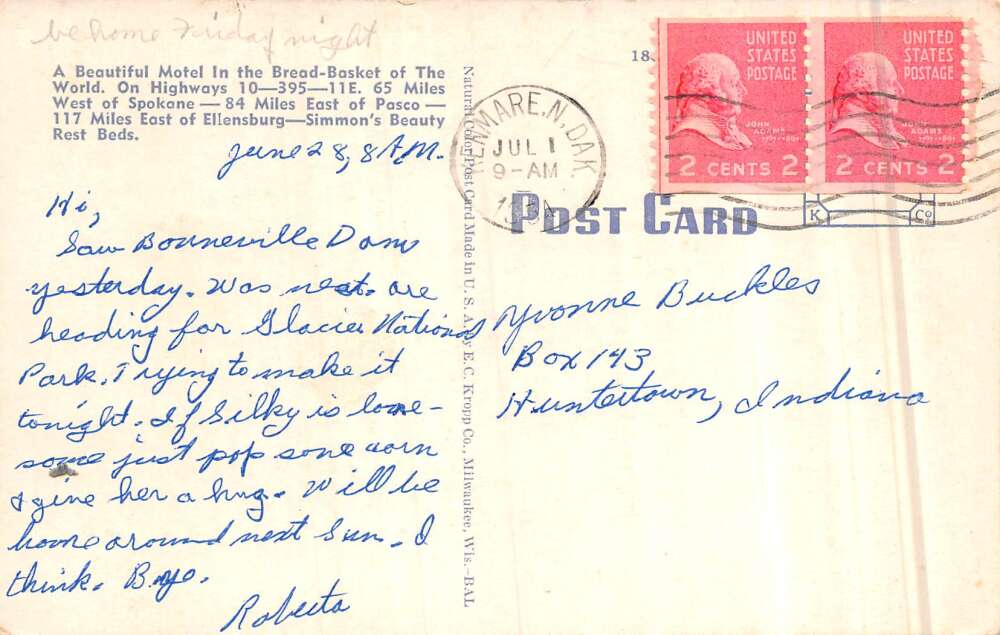 be home Friday night
A Beautiful Motel In the Bread-Basket of The
World. On Highways 10—395—11E. 65 Miles
West of Spokane — 84 Miles East of Pasco —
117 Miles East of Ellensburg—Simmon's Beauty
Rest Beds.
June 28, 8 A.M.
Hi,
Saw Bonneville Dam
yesterday. Was neat. are
heading for Glacier National
Park. Trying to make it
tonight. If Silky is lone-
some just pop some corn
& give her a hug. Will be
home around next Sun. I
think. Bye.
Roberta
Natural Color Post Card Made in U. S. A. by E. C. Kropp Co., Milwaukee, Wis.—BAL
18
KENMARE, N. DAK.
JUL 1
9-AM
UNITED
STATES
POSTAGE
JOHN
ADAMS
2 CENTS 2
UNITED
STATES
POSTAGE
ADAMS
2 CENTS 2
POST CARD
K Co
Yvonne Buckles
Box 143
Huntertown, Indiana